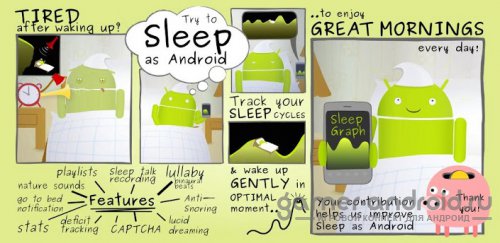 TIRED
after waking up?
Try to
Sleep
as Android
Track your
SLEEP CYCLES
& wake up
GENTLY in
OPTIMAL
moment..
..to enjoy
GREAT MORNINGS
every day!
Sleep
Graph
Your contribution
helps us improve
Sleep as Android
Thank
you!
playlists
sleep talk
recording
lullaby
binaural
beats
nature sounds
go to bed
notification
Features
Anti-
Snoring
stats
deficit
tracking
CAPTCHA
lucid
dreaming